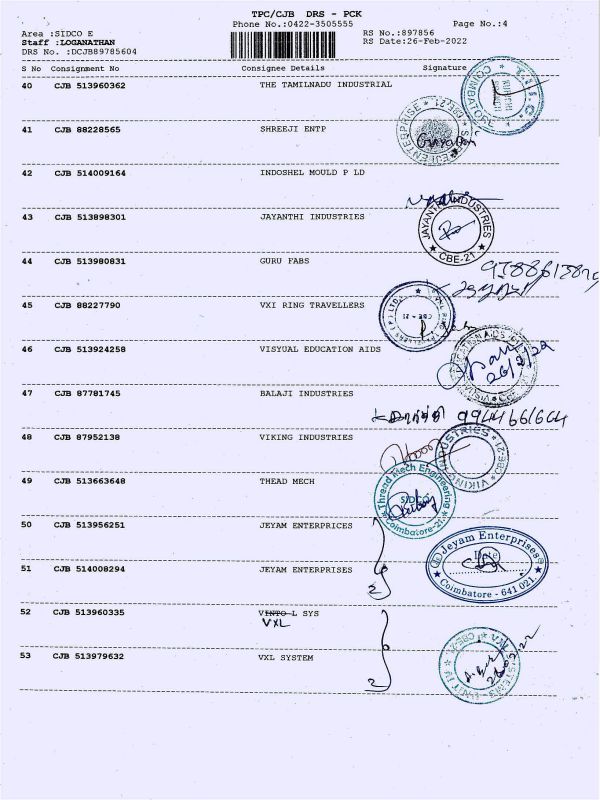 TPC/CJB DRS - PCK
Phone No.:0422-3505555 Page No.:4
Area :SIDCO E RS No.:897856
Staff :LOGANATHAN RS Date:26-Feb-2022
DRS No. :DCJB89785604
S No Consignment No Consignee Details Signature
40 CJB 513960362 THE TAMILNADU INDUSTRIAL
COIMBATORE
41 CJB 88228565 SHREEJI ENTP
42 CJB 514009164 INDOSHEL MOULD P LD
43 CJB 513898301 JAYANTHI INDUSTRIES
JAYANTHI INDUSTRIES
CBE-21
44 CJB 513980831 GURU FABS
45 CJB 88227790 VXI RING TRAVELLERS
CBE - 21
46 CJB 513924258 VISYUAL EDUCATION AIDS
26/2/22
47 CJB 87781745 BALAJI INDUSTRIES
9944661664
48 CJB 87952138 VIKING INDUSTRIES
VIKING INDUSTRIES CBE-21
49 CJB 513663648 THEAD MECH
Thread Mech Engineering
SIDCO
Coimbatore-21.
50 CJB 513956251 JEYAM ENTERPRICES
Jeyam Enterprises
Date
51 CJB 514008294 JEYAM ENTERPRISES
Coimbatore - 641 021.
52 CJB 513960335 VINTO L SYS
VXL
53 CJB 513979632 VXL SYSTEM